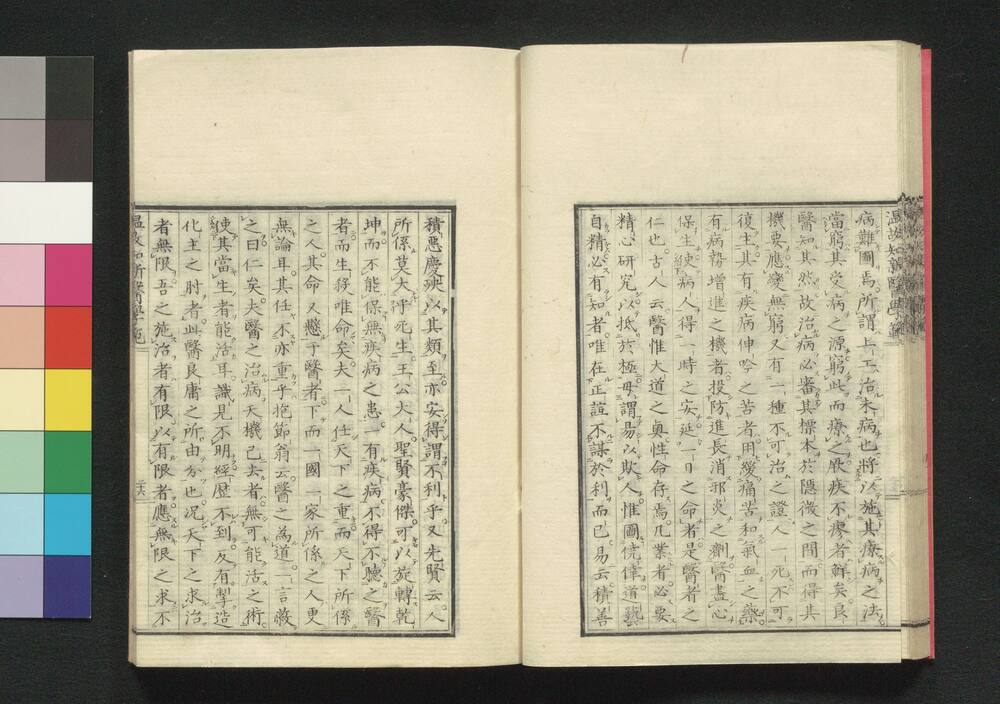 溫故知新醫學範
病難圖焉所謂上工治未病也將以施其療病之法
當窮其受病之源窮此而療之厥疾不瘳者鮮矣良
醫知其然故治病必審其標本於隱微之間而得其
機要應變無窮又有一種不可治之證人一死不可
復生其有疾病伸吟之苦者用緩痛苦和氣血之藥
有病勢增進之機者投防進長消邪炎之劑醫盡心
保生使病人得一時之安延一日之命者是醫者之
仁也古人云醫惟大道之奧性命存焉凡業者必要
精心研究以抵於極毋謂易以欺人惟圖僥倖道藝
自精必有知者唯在正誼不謀於利而已易云積善
積惡慶殃以其類至亦安得謂不利乎又先賢云人
所係莫大乎死生王公大人聖賢豪傑可以旋轉乾
坤而不能保無疾病之患一有疾病不得不聽之醫
者而生殺唯命矣夫一人任天下之重而天下所係
之人其命又懸于醫者下而一國一家所係之人更
無論耳其任不亦重乎抱節翁云醫之為道一言蔽
之曰仁矣夫醫之治病天機已去者無可能活之術
使其當生者能活耳識見不明經歷不到反有掣造
化主之肘者此醫良庸之所由分也况天下之求治
者無限吾之施治者有限以有限者應無限之求不
溫故知新醫學範
二十六